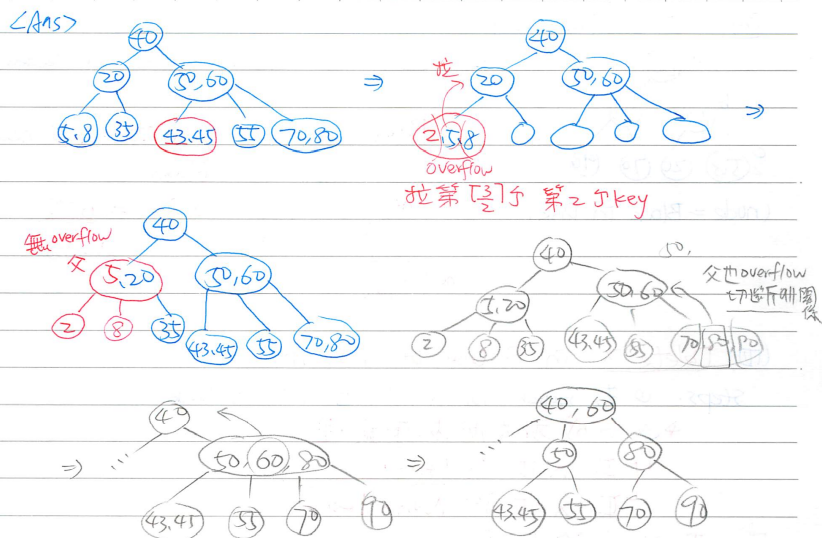 <Ans>
40
20 50,60
5,8 35 43,45 55 70,80
⇒
40
拉 20 50,60
2,5,8
overflow
拉第⌈3/2⌉个 第2个key
⇒
40
無overflow
父 5,20 50,60
2 8 35 43,45 55 70,80
40 50,
5,20 50,60
父也overflow
切斷所有關
係
2 8 35 43,45 55 70,80,90
⇒ 40
... 50,60,80
43,45 55 70 90
⇒ 40,60
... 50 80
43,45 55 70 90
Steps